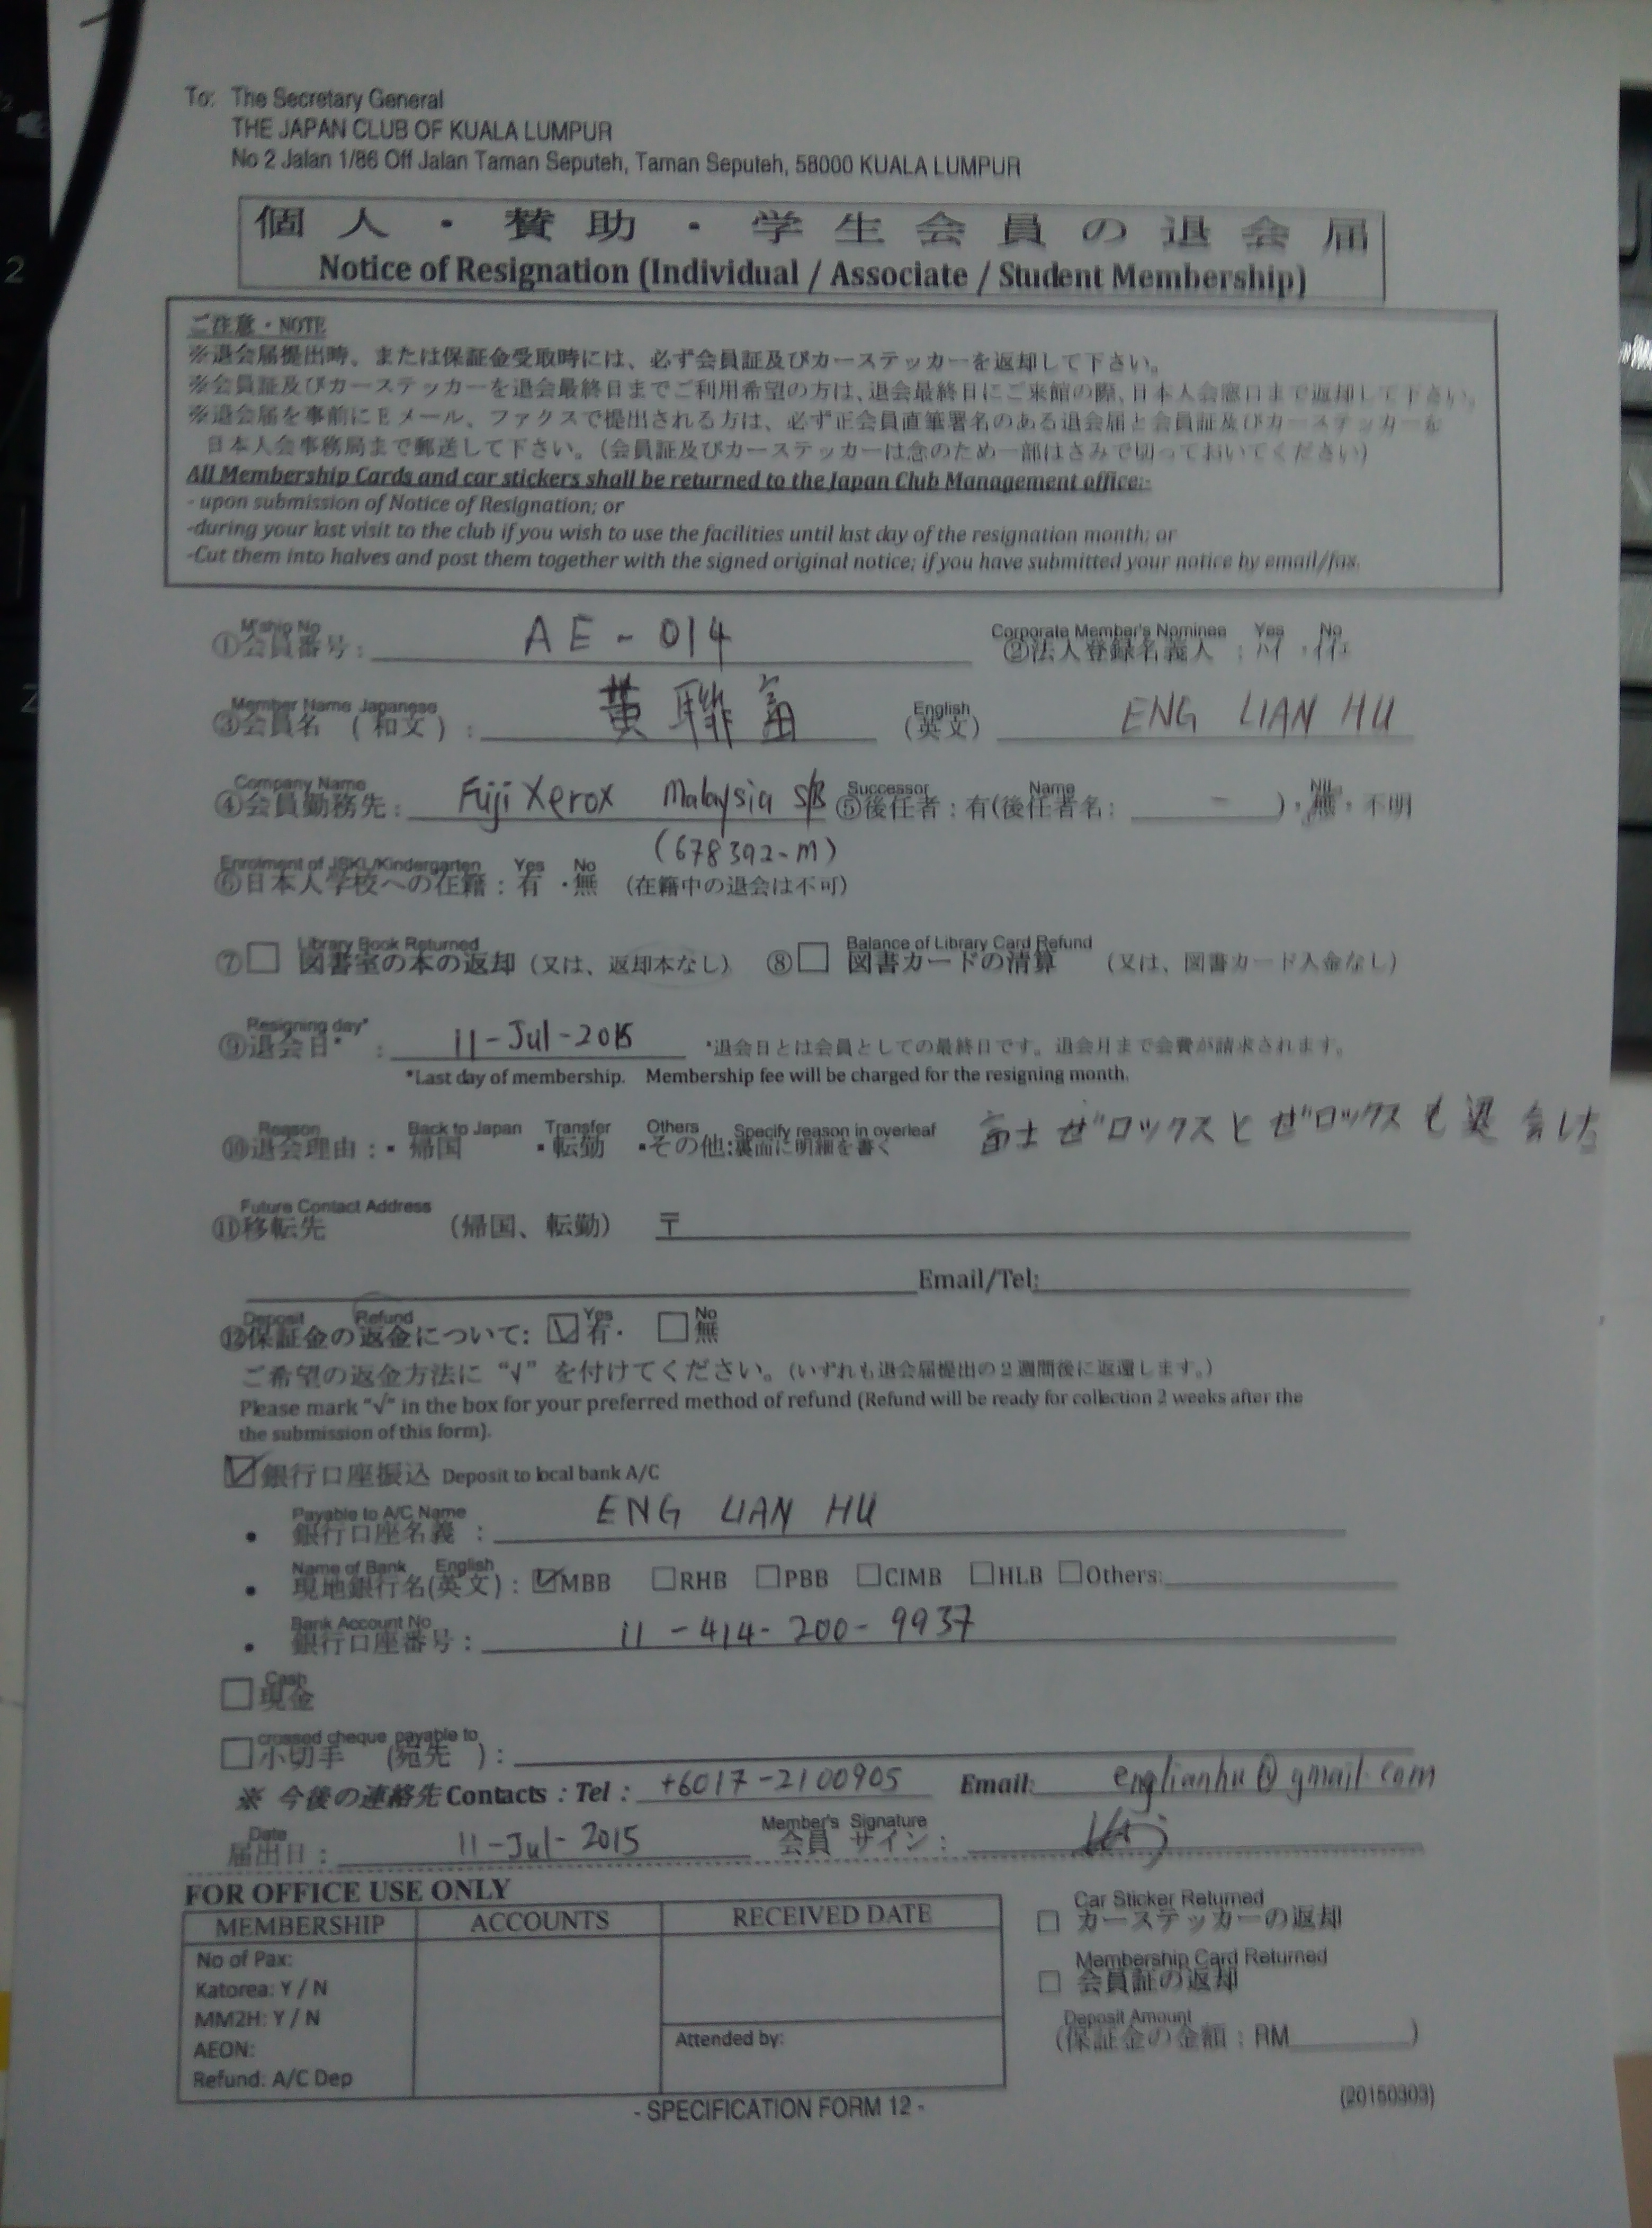 To: The Secretary General
THE JAPAN CLUB OF KUALA LUMPUR
No 2 Jalan 1/86 Off Jalan Taman Seputeh, Taman Seputeh, 58000 KUALA LUMPUR
個人・賛助・学生会員の退会届
Notice of Resignation (Individual / Associate / Student Membership)
ご注意・NOTE
※退会届提出時、または保証金受取時には、必ず会員証及びカーステッカーを返却して下さい。
※会員証及びカーステッカーを退会最終日までご利用希望の方は、退会最終日にご来館の際、日本人会窓口まで返却して下さい。
※退会届を事前にEメール、ファクスで提出される方は、必ず正会員直筆署名のある退会届と会員証及びカーステッカーを
日本人会事務局まで郵送して下さい。(会員証及びカーステッカーは念のため一部はさみで切っておいてください)
All Membership Cards and car stickers shall be returned to the Japan Club Management office:-
- upon submission of Notice of Resignation; or
-during your last visit to the club if you wish to use the facilities until last day of the resignation month; or
-Cut them into halves and post them together with the signed original notice; if you have submitted your notice by email/fax.
M'ship No Corporate Member's Nominee Yes No
①会員番号: AE-014 ②法人登録名義人 :
Member Name Japanese English
③会員名 (和文) : 黄 聯 富 (英文) ENG LIAN HU
Company Name Successor Name NIL
④会員勤務先: Fuji Xerox Malaysia S/B ⑤後任者:有(後任者名: - )・無・不明
(678392-M)
Enrolment of JSKL/Kindergarten Yes No
⑥日本人学校への在籍:有・無 (在籍中の退会は不可)
Library Book Returned Balance of Library Card Refund
⑦□ 図書室の本の返却 (又は、返却本なし) ⑧□ 図書カードの清算 (又は、図書カード入金なし)
Resigning day*
⑨退会日* : 11-Jul-2015 *退会日とは会員としての最終日です。退会月まで会費が請求されます。
*Last day of membership. Membership fee will be charged for the resigning month.
Reason Back to Japan Transfer Others Specify reason in overleaf
⑩退会理由:・帰国 ・転勤 ・その他:裏面に明細を書く 富士ゼロックスとゼロックスも退会した
Future Contact Address
⑪移転先 (帰国、転勤) 〒
Email/Tel:
Deposit Refund Yes No
⑫保証金の返金について: ☑有・ □無
ご希望の返金方法に “√” を付けてください。(いずれも退会届提出の2週間後に返還します。)
Please mark “√” in the box for your preferred method of refund (Refund will be ready for collection 2 weeks after the
the submission of this form).
☑銀行口座振込 Deposit to local bank A/C
Payable to A/C Name
• 銀行口座名義 : ENG LIAN HU
Name of Bank English
• 現地銀行名(英文) : ☑MBB □RHB □PBB □CIMB □HLB □Others:
Bank Account No
• 銀行口座番号 : 11-414-200-9937
Cash
□現金
crossed cheque payable to
□小切手 (宛先 ) :
※ 今後の連絡先 Contacts : Tel : +6017-2100905 Email: englianhu@gmail.com
Date Member's Signature
届出日 : 11-Jul-2015 会員 サイン :
FOR OFFICE USE ONLY
MEMBERSHIP ACCOUNTS RECEIVED DATE
No of Pax:
Katorea: Y / N
MM2H: Y / N
AEON:
Refund: A/C Dep
Attended by:
Car Sticker Returned
□ カーステッカーの返却
Membership Card Returned
□ 会員証の返却
Deposit Amount
(保証金の金額 : RM )
- SPECIFICATION FORM 12 -
(20150303)